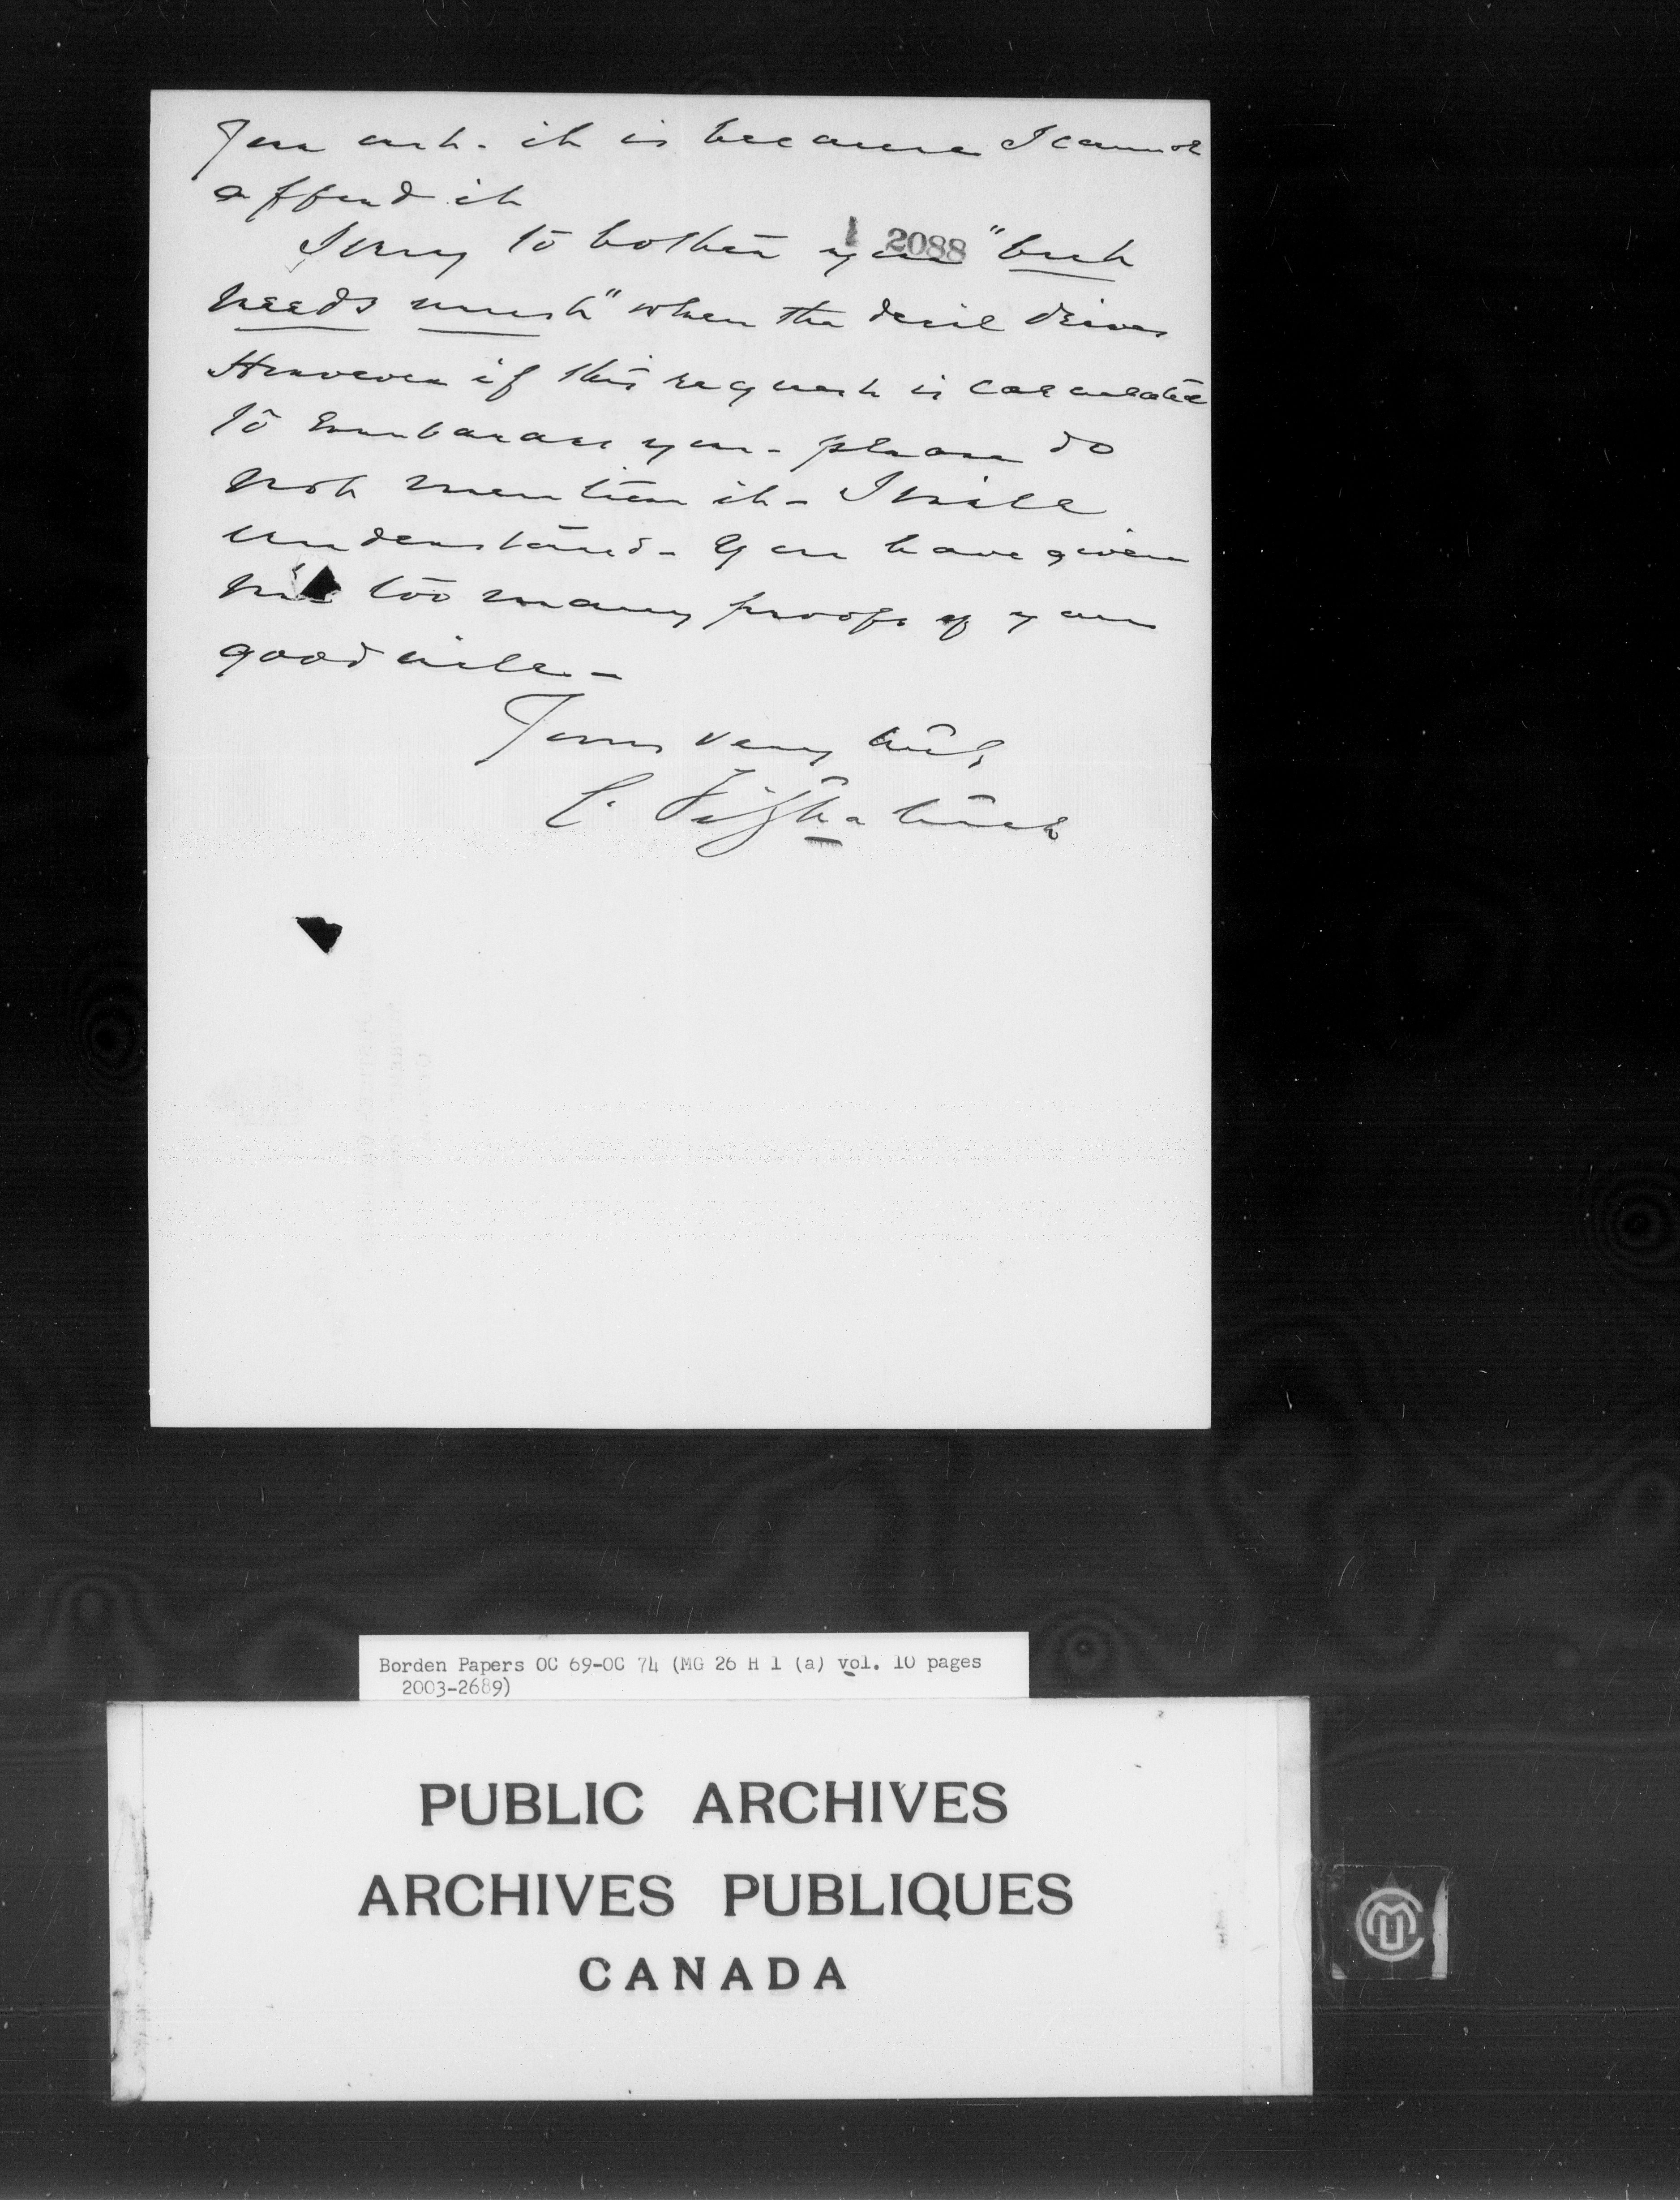 You ask. it is because I cannot
afford it
Sorry to bother you "but
2088
needs must" when the devil drives
However if this request is calculated
to embarrass you - please do
not mention it - I will
understand - You have given
me too many proofs of your
good will -
Yours very truly
C. Fitzpatrick
Borden Papers OC 69-OC 74 (MG 26 H 1 (a) vol. 10 pages
2003-2689)
PUBLIC ARCHIVES
ARCHIVES PUBLIQUES
CANADA